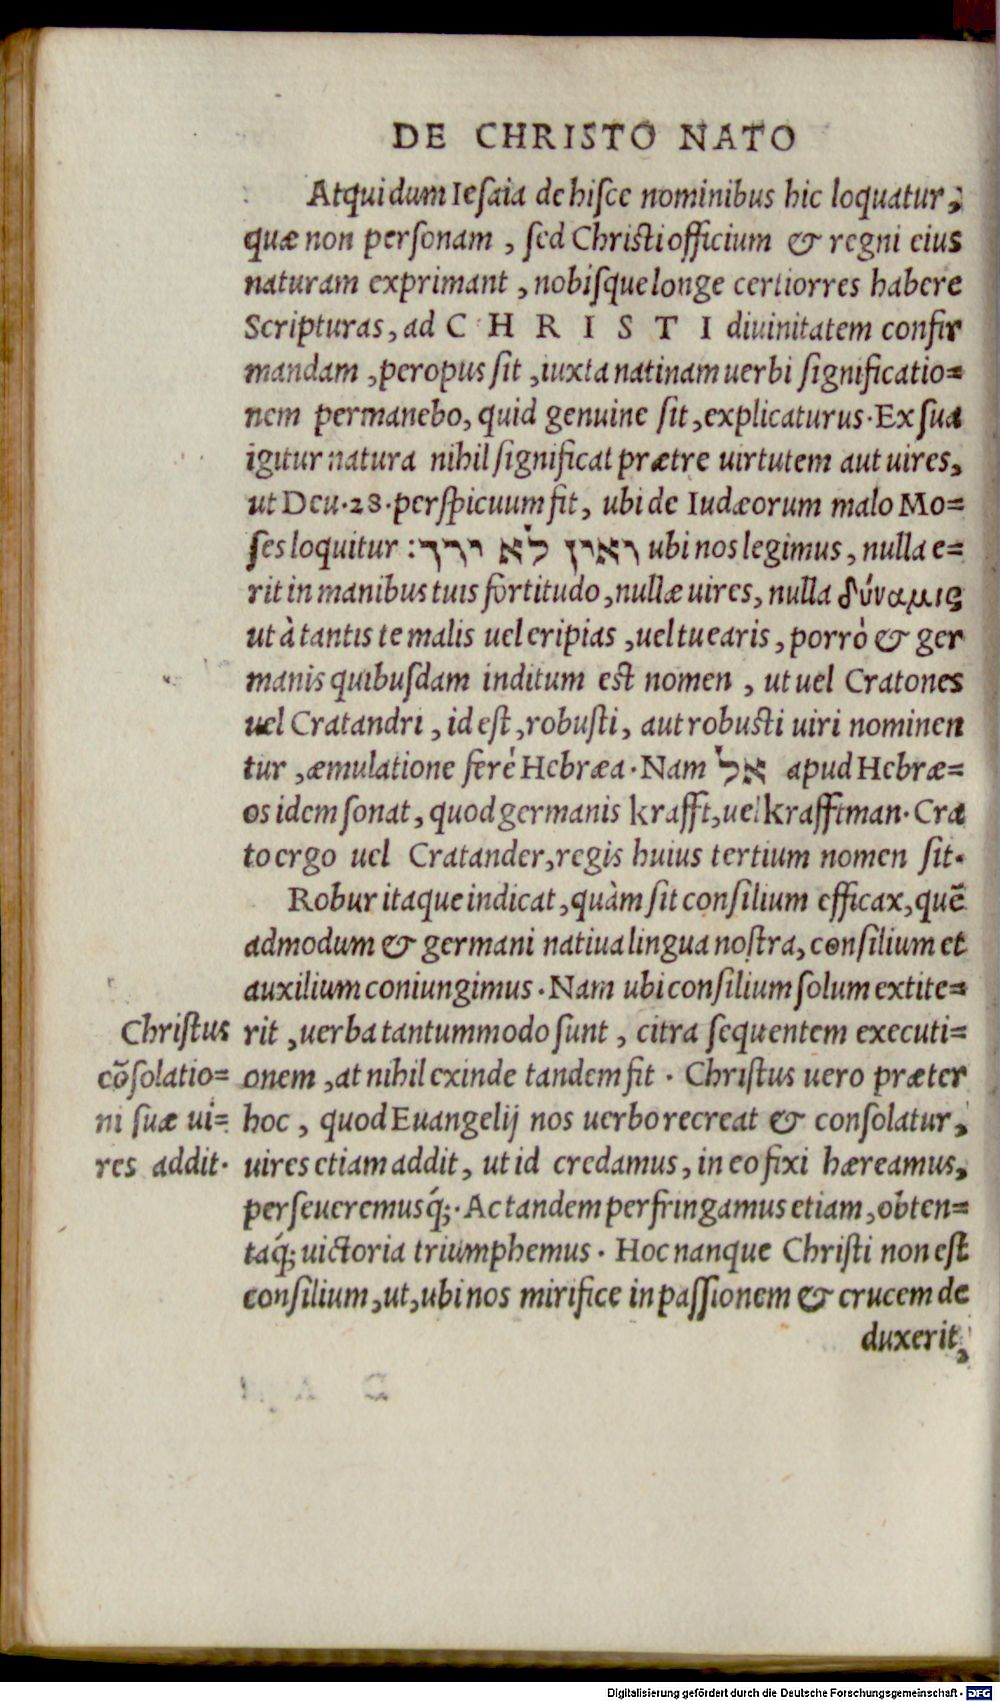 DE CHRISTO NATO
Atqui dum Ieſaia de hiſce nominibus hic loquatur,
quæ non perſonam, ſed Chriſti officium & regni eius
naturam exprimant, nobiſque longe certiorres habere
Scripturas, ad CHRISTI diuinitatem confir
mandam, peropus ſit, iuxta natinam uerbi ſignificatio=
nem permanebo, quid genuine ſit, explicaturus. Ex ſua
igitur natura nihil ſignificat prætre uirtutem aut uires,
ut Deu. 28. perſpicuum fit, ubi de Iudæorum malo Mo=
ſes loquitur: ואין לא ידך ubi nos legimus, nulla e=
rit in manibus tuis fortitudo, nullæ uires, nulla δύναμις
ut à tantis te malis uel eripias, uel tuearis, porrò & ger
manis quibuſdam inditum est nomen, ut uel Cratones
uel Cratandri, id eſt, robuſti, aut robusti uiri nominen
tur, æmulatione ferè Hebræa. Nam אל apud Hebræ=
os idem ſonat, quod germanis krafft, uel krafftman. Cra
to ergo uel Cratander, regis huius tertium nomen ſit.
Robur itaque indicat, quàm ſit conſilium efficax, quẽ
admodum & germani natiua lingua noſtra, conſilium et
auxilium coniungimus. Nam ubi conſilium ſolum extite=
rit, uerba tantummodo ſunt, citra ſequentem executi=
onem, at nihil exinde tandem fit. Chriſtus uero præter
hoc, quod Euangelij nos uerbo recreat & conſolatur,
uires etiam addit, ut id credamus, in eo fixi hæreamus,
perſeueremusq́;. Ac tandem perfringamus etiam, obten=
taq́; uictoria triumphemus. Hoc nanque Chriſti non eſt
conſilium, ut, ubi nos mirifice in paſſionem & crucem de
duxerit,
Chriſtus
cõſolatio=
ni ſuæ ui=
res addit.
Digitalisierung gefördert durch die Deutsche Forschungsgemeinschaft - DFG